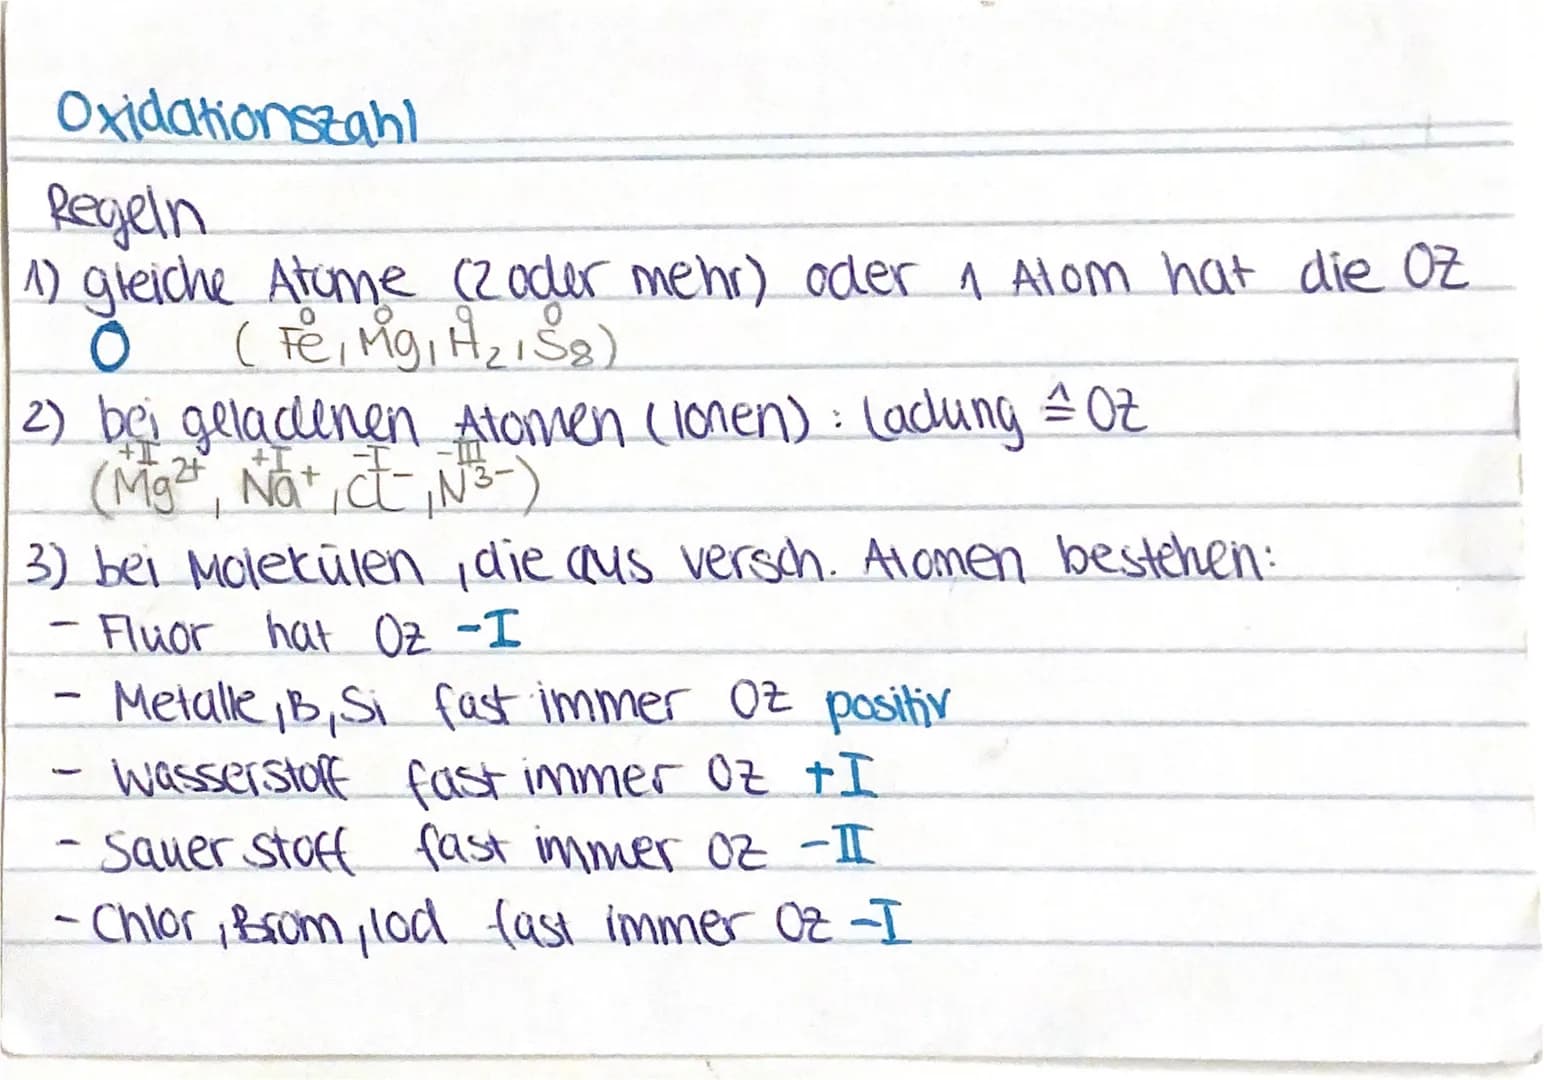 Oxidationszahl
Regeln
1) gleiche Atome (2 oder mehr) oder 1 Atom hat die OZ
0 0 0 0
0 (Fe, Mg, H₂, S₈)
2) bei geladenen Atomen (Ionen): Ladung ≙ OZ
+II +I -I -III
(Mg²⁺, Na⁺, Cl⁻, N³⁻)
3) bei Molekülen, die aus versch. Atomen bestehen:
- Fluor hat OZ -I
- Metalle, B, Si fast immer OZ positiv
- Wasserstoff fast immer OZ +I
- Sauerstoff fast immer OZ -II
- Chlor, Brom, Iod fast immer OZ -I